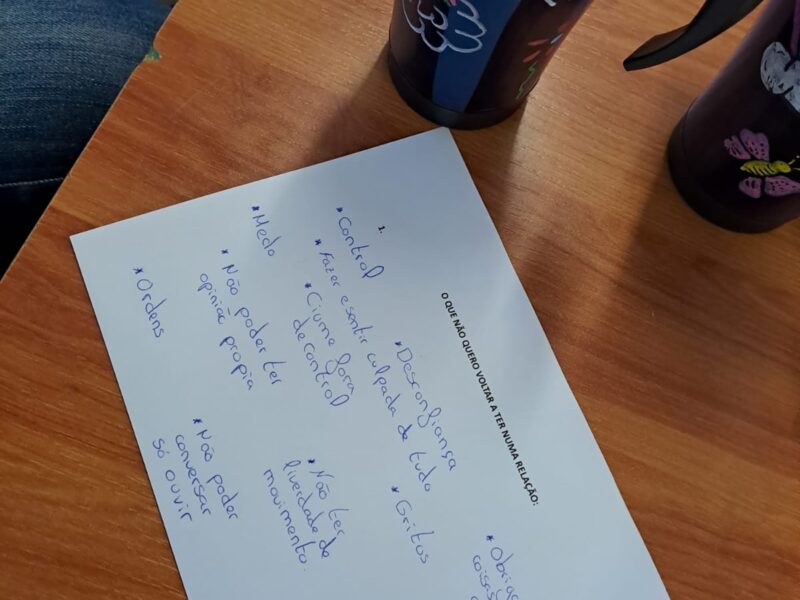 O QUE NÃO QUERO VOLTAR A TER NUMA RELAÇÃO:
1.
*Control
*Desconfiança
*Fazer esentir culpada de tudo
*Gritos
*Ciume fora
de control
*Medo
*Não poder ter
opinião propia
*Não ter
liverdade de
movimento.
*Ordens
*Não poder
conversar
só ouvir
coisas